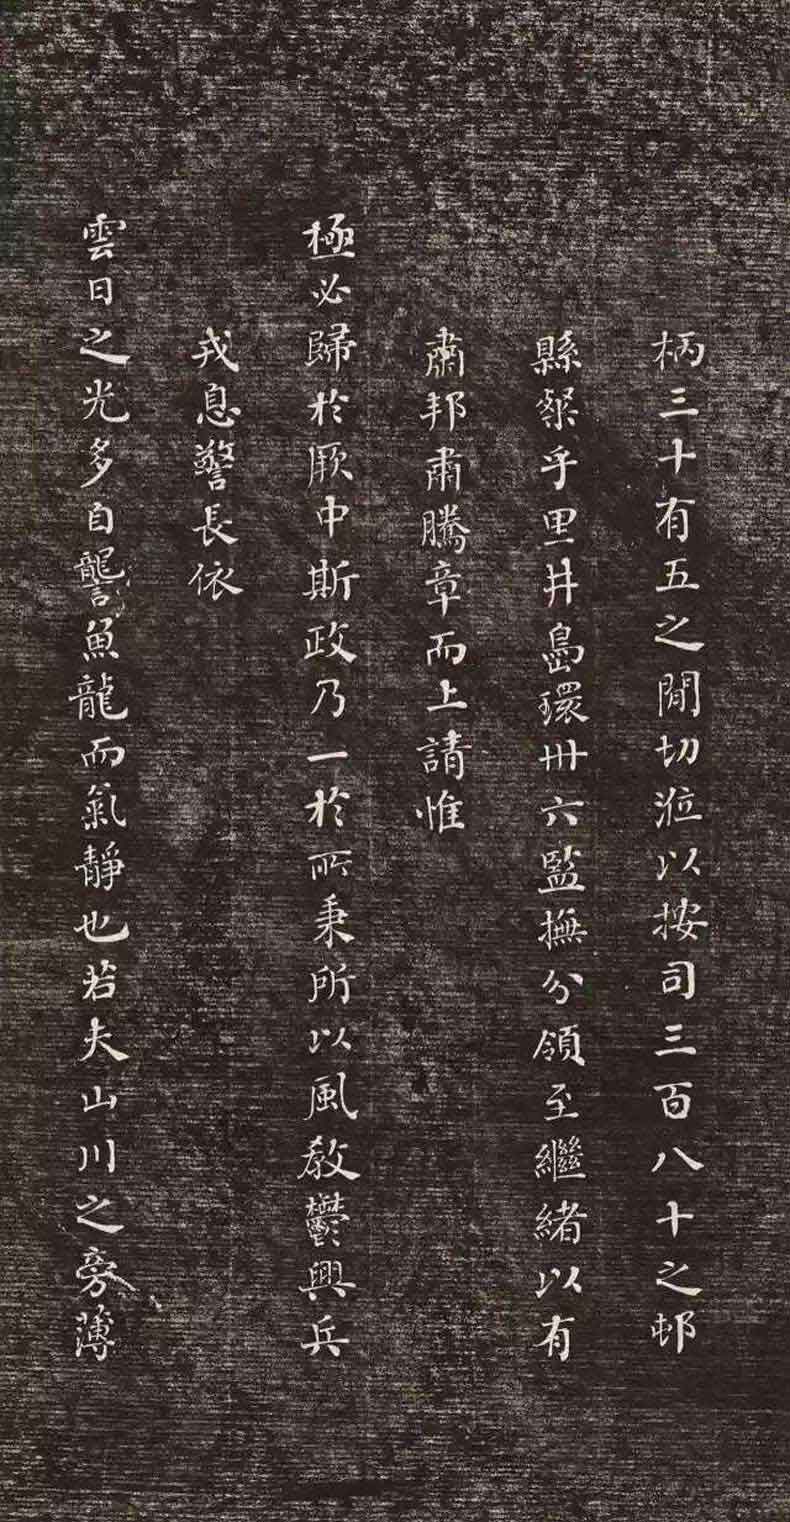 柄三十有五之間切涖以按司三百八十之邨
縣粲乎里井島環卅六監撫分領至繼緒以有
肅邦肅騰章而上請惟
極必歸於厥中斯政乃一於所秉所以風教鬱興兵
戎息警長依
雲日之光多自讋魚龍而氣靜也若夫山川之旁薄